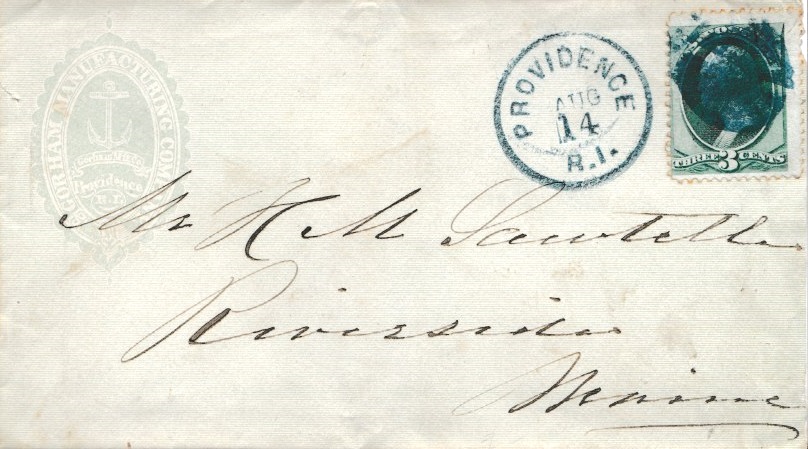 GORHAM MANUFACTURING COMPANY
Providence
R.I.
PROVIDENCE
AUG
14
R.I.
THREE 3 CENTS
Mr H M Sawtelle
Riverside
Maine